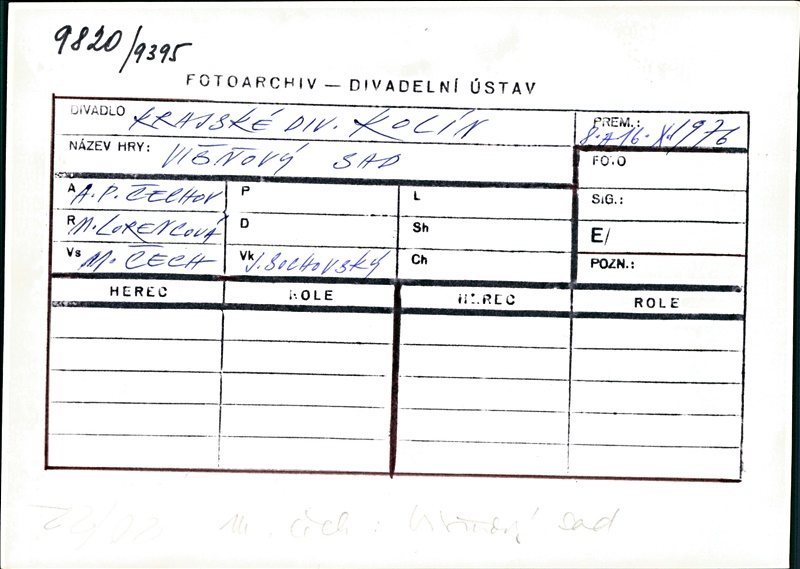 9820/9395
FOTOARCHIV — DIVADELNÍ ÚSTAV
DIVADLO KRAJSKÉ DIV. KOLÍN
PREM.: 8. A 16. X. 1976
NÁZEV HRY: VIŠŇOVÝ SAD
FOTO
A A. P. ČECHOV P L
SIG.:
R M. LORENCOVÁ D Sh
E/
Vs M. ČECH Vk J. SOCHOVSKÝ Ch
POZN.:
HEREC ROLE HEREC ROLE
M. Čech: Višňový sad